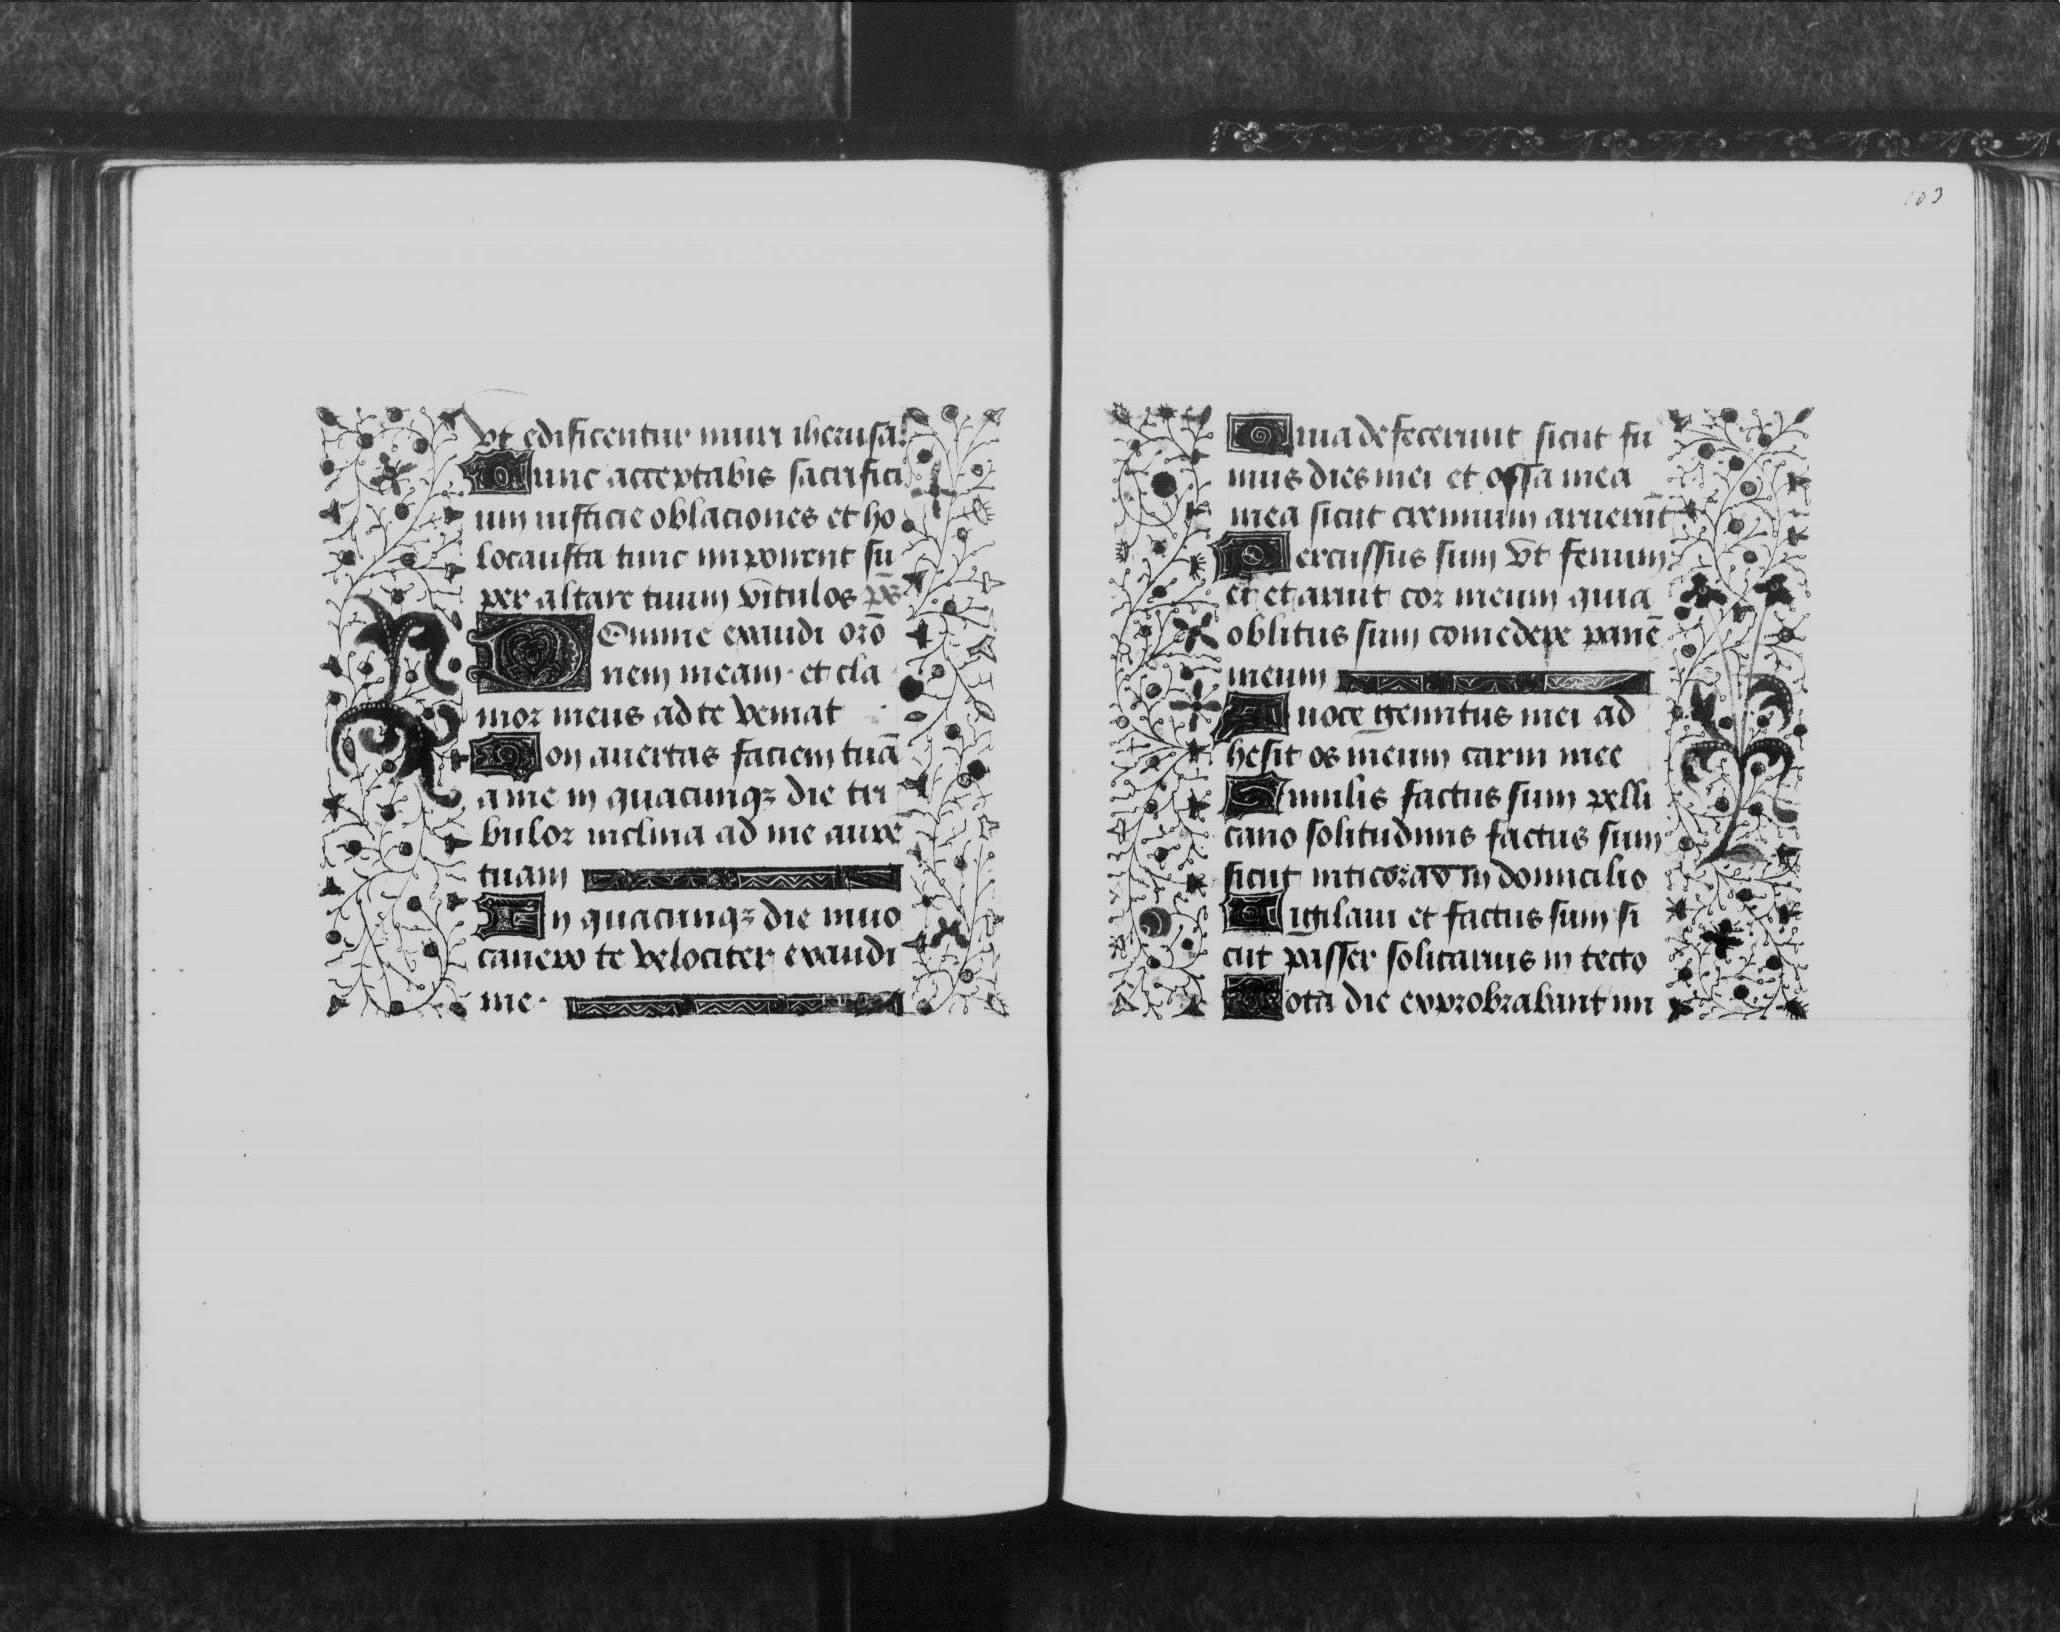 vt edificentur muri iherusa.
Tunc acceptabis sacrifici
um iusticie oblaciones et ho
locausta tunc imponent su
per altare tuum vitulos ps̄
Domine exaudi orō
nem meam · et cla
mor meus ad te veniat
Non auertas faciem tuā
a me in quacunqꝫ die tri
bulor inclina ad me aurē
tuam
In quacunqꝫ die inuo
cauero te velociter exaudi
me ·
103
Quia defecerunt sicut fu
mus dies mei et ossa mea
mea sicut cremium aruerūt
Percussus sum vt fenum
et et aruit cor meum quia
oblitus sum comedere panē
meum
A uoce gemitus mei ad
hesit os meum carni mee
Similis factus sum pelli
cano solitudinis factus sum
sicut nicticorax in domicilio
Vigilaui et factus sum si
cut passer solitarius in tecto
Tota die exprobrabant mi